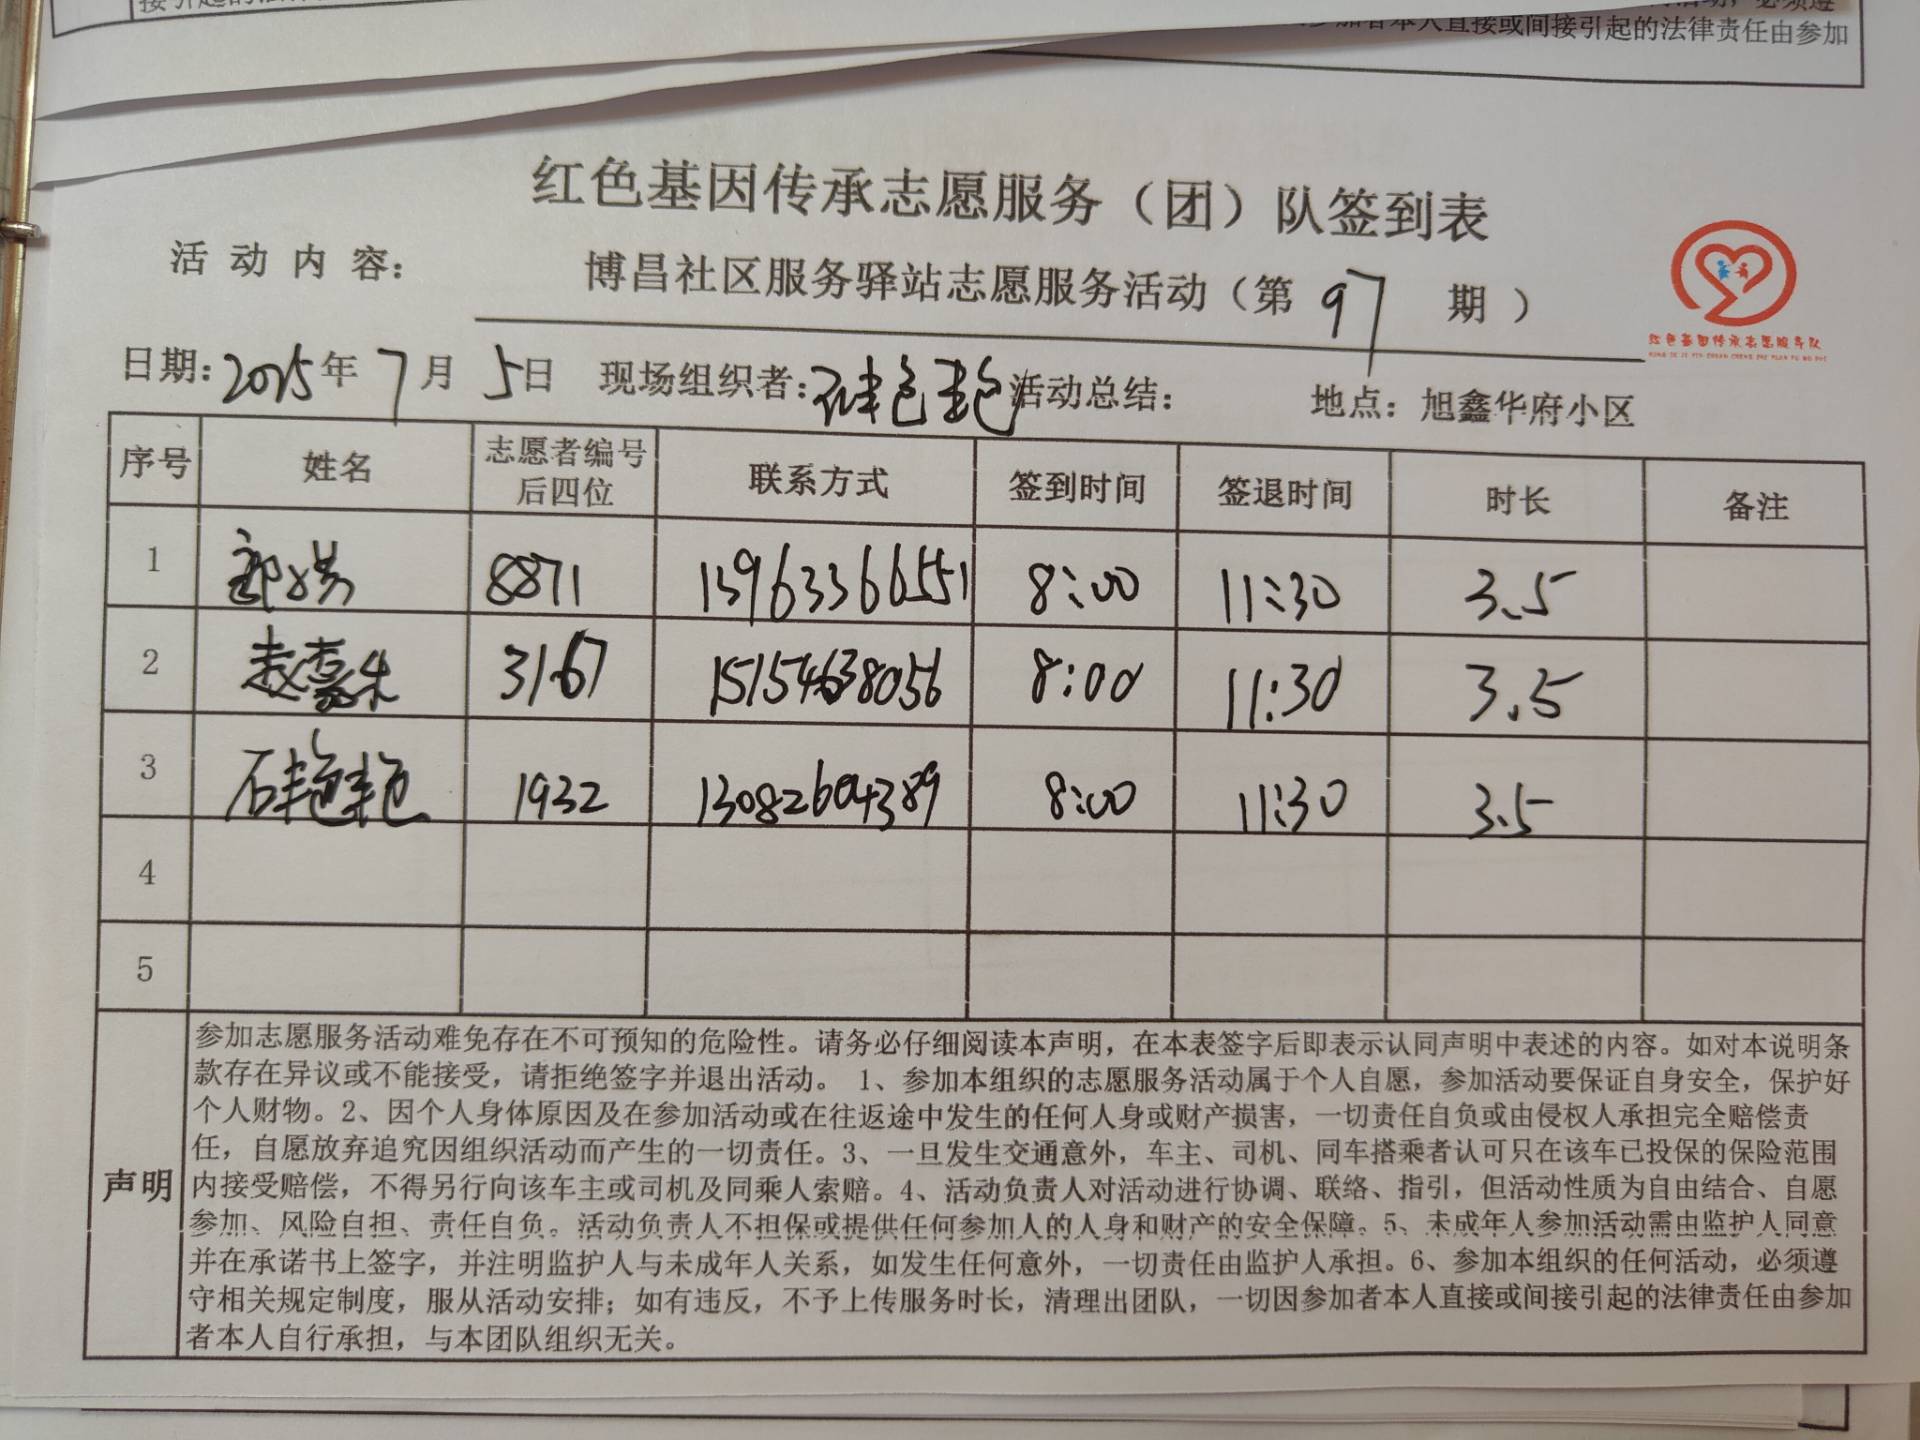 参加者本人直接或间接引起的法律责任由参加
红色基因传承志愿服务（团）队签到表
活动内容： 博昌社区服务驿站志愿服务活动（第 97 期）
红色基因传承志愿服务队
日期：2025年 7 月 5日 现场组织者：石艳艳 活动总结： 地点：旭鑫华府小区
序号 姓名 志愿者编号后四位 联系方式 签到时间 签退时间 时长 备注
1 8871 13963366551 8:00 11:30 3.5
2 3167 15154638056 8:00 11:30 3.5
3 石艳艳 1932 13082604389 8:00 11:30 3.5
4
5
声明
参加志愿服务活动难免存在不可预知的危险性。请务必仔细阅读本声明，在本表签字后即表示认同声明中表述的内容。如对本说明条
款存在异议或不能接受，请拒绝签字并退出活动。 1、参加本组织的志愿服务活动属于个人自愿，参加活动要保证自身安全，保护好
个人财物。2、因个人身体原因及在参加活动或在往返途中发生的任何人身或财产损害，一切责任自负或由侵权人承担完全赔偿责
任，自愿放弃追究因组织活动而产生的一切责任。3、一旦发生交通意外，车主、司机、同车搭乘者认可只在该车已投保的保险范围
内接受赔偿，不得另行向该车主或司机及同乘人索赔。4、活动负责人对活动进行协调、联络、指引，但活动性质为自由结合、自愿
参加、风险自担、责任自负。活动负责人不担保或提供任何参加人的人身和财产的安全保障。5、未成年人参加活动需由监护人同意
并在承诺书上签字，并注明监护人与未成年人关系，如发生任何意外，一切责任由监护人承担。6、参加本组织的任何活动，必须遵
守相关规定制度，服从活动安排；如有违反，不予上传服务时长，清理出团队，一切因参加者本人直接或间接引起的法律责任由参加
者本人自行承担，与本团队组织无关。